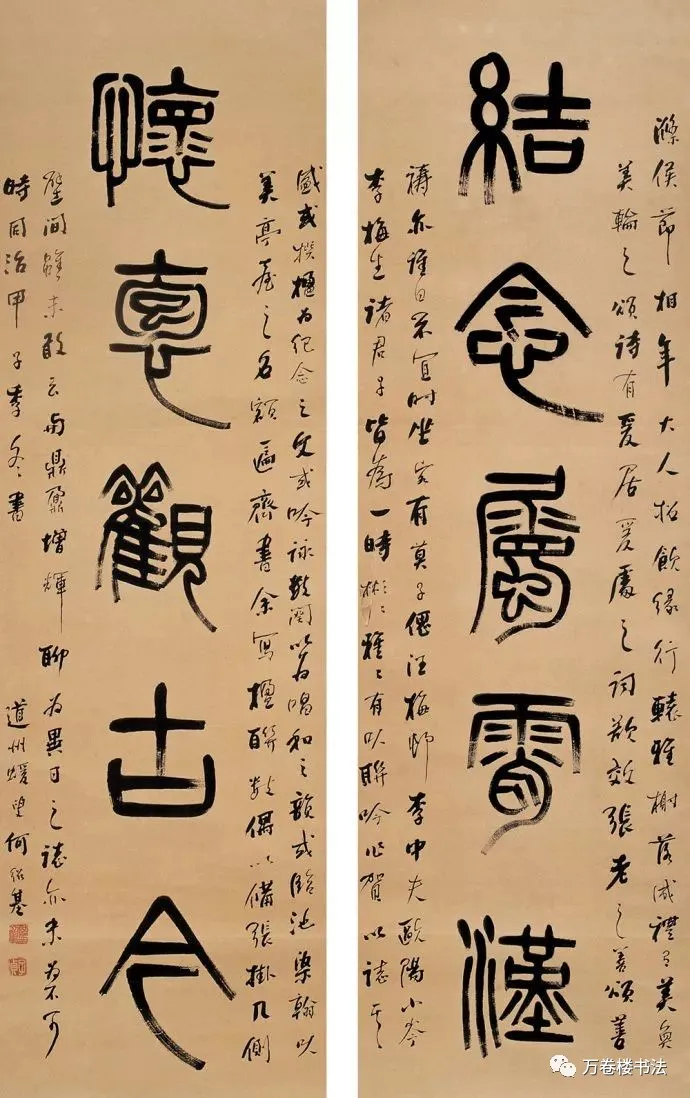 結念屬霄漢
滌侯節相年大人招飲緣行轅雅榭落成禮有美奐
美輪之頌詩有爰居爰處之詞欲效張老之善頌善
禱亦誰曰不宜时坐客有莫子偲汪梅邨李中夫歐陽小岑
李梅生諸君子皆為一時彬彬雅雅有以聯吟作賀以誌其
懷袌觀古今
盛或撰楹为紀念之文或吟詠數闋以為唱和之韻或臨池染翰以
美亭臺之名額匾齋書余寫楹聯數偶以備張掛几側
壁間雖未敢云與鼎鼐增輝聊为異日之誌亦未为不可
時同治甲子季冬書
道州蝯叟何紹基
万卷楼书法